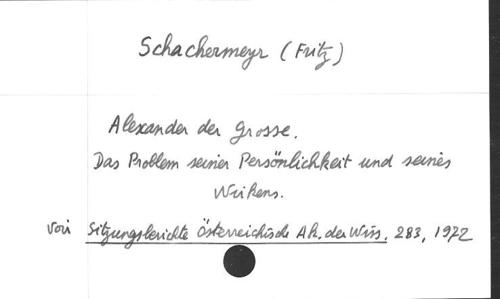 Schachermeyr (Fritz)
Alexander der Grosse.
Das Problem seiner Persönlichkeit und seines
Wirkens.
Voir Sitzungsberichte Österreichische Ak. der Wiss. 283, 1972